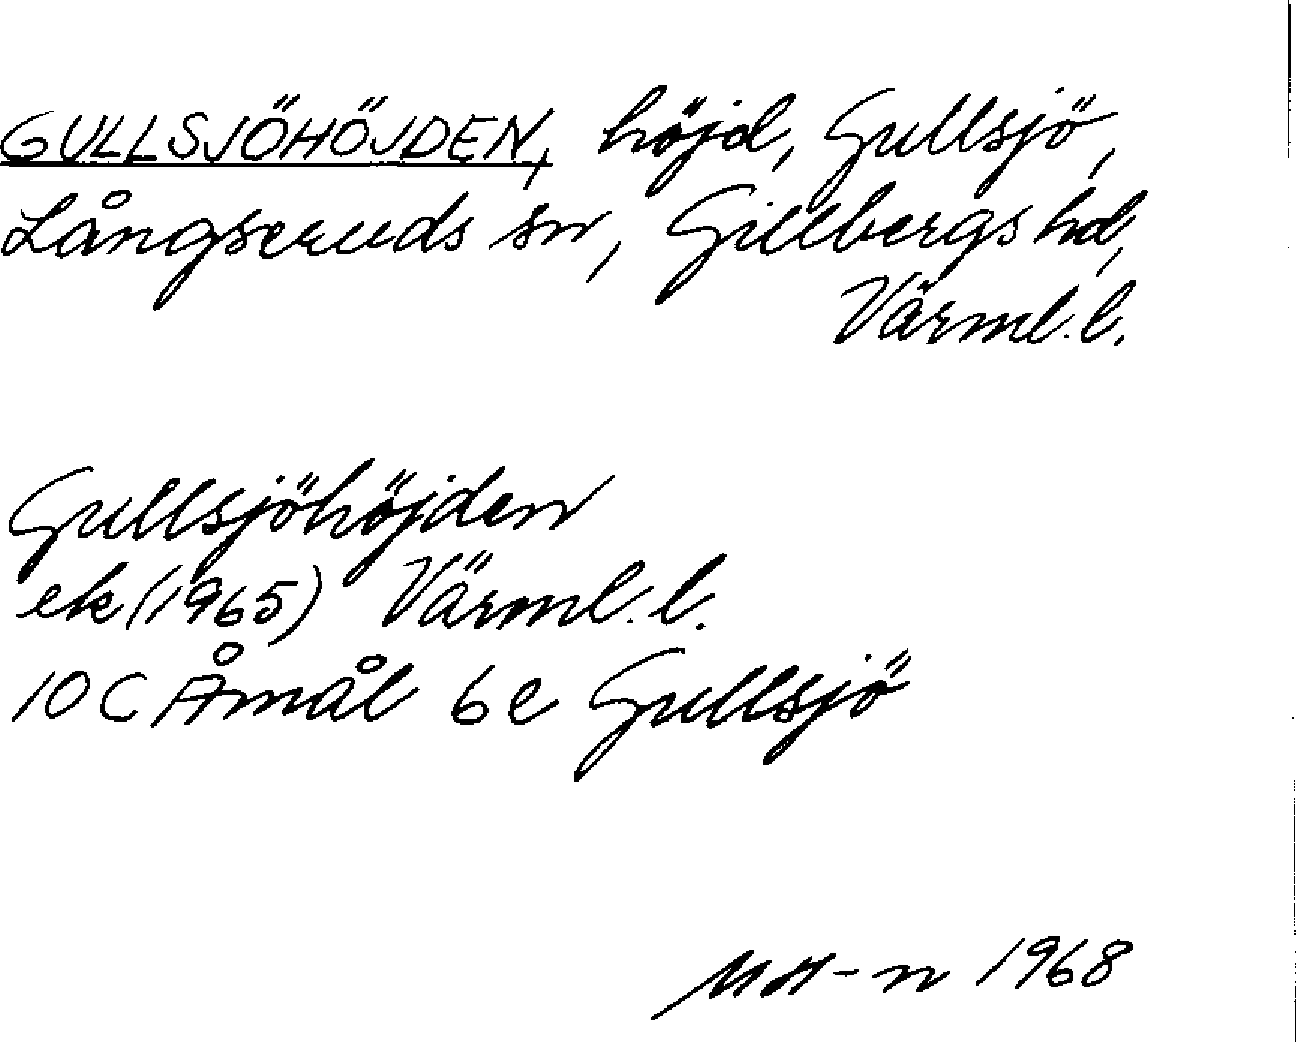 GULLSJÖHÖJDEN, höjd, Gullsjö,
Långseruds sn, Gillbergs hd,
Värml. l.
Gullsjöhöjden
ek (1965) Värml. l.
10 C Åmål 6e Gullsjö
MH-n 1968